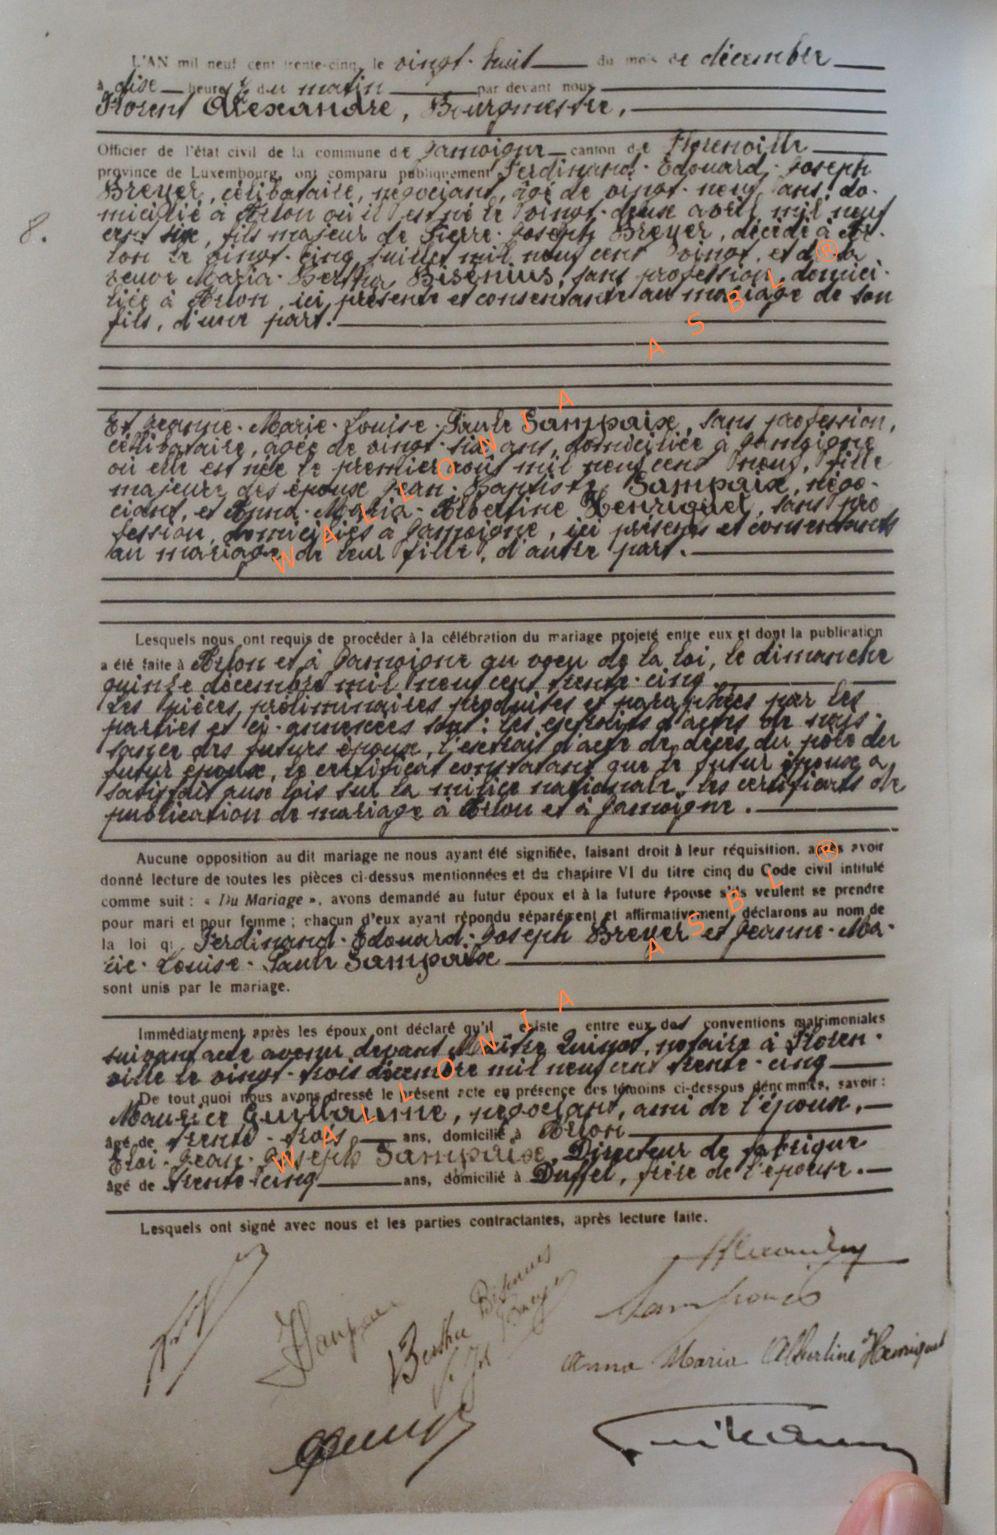 L'AN mil neuf cent trente-cinq, le vingt-huit du mois de décembre
à dix heures du matin par devant nous
Florent Alexandre, Bourgmestre,
Officier de l'état civil de la commune de Jamoigne canton de Florenville
province de Luxembourg, ont comparu publiquement Ferdinand-Edouard-Joseph
Breyer, célibataire, négociant, âgé de vingt-neuf ans, do-
micilié à Arlon où il est né le vingt-deux avril mil neuf
8.
cent six, fils majeur de Pierre-Joseph Breyer, décédé à Ar-
lon le vingt-cinq juillet mil neuf cent vingt, et de la
veuve Maria-Bertha Bisenius, sans profession, domici-
liée à Arlon, ici présente et consentante au mariage de son
fils, d'une part.
Et Jeanne-Marie-Louise-Paule Sampaix, sans profession,
célibataire, âgée de vingt-six ans, domiciliée à Jamoigne
où elle est née le premier août mil neuf cent neuf, fille
majeure des époux Jean-Baptiste Sampaix, négo-
ciant, et Anna-Maria-Albertine Henriquet, sans pro
fession, domiciliés à Jamoigne, ici présents et consentants
au mariage de leur fille, d'autre part.
Lesquels nous ont requis de procéder à la célébration du mariage projeté entre eux et dont la publication
a été faite à Arlon et à Jamoigne au voeu de la loi, le dimanche
quinze décembre mil neuf cent trente-cinq.
Les pièces préliminaires produites et paraphées par les
parties et ci-annexées sont : les extraits d'actes de nais-
sance des futurs époux, l'extrait d'acte de décès du père du
futur époux, le certificat constatant que le futur époux a
satisfait aux lois sur la milice nationale, les certificats de
publication de mariage à Arlon et à Jamoigne.
Aucune opposition au dit mariage ne nous ayant été signifiée, faisant droit à leur réquisition, après avoir
donné lecture de toutes les pièces ci-dessus mentionnées et du chapitre VI du titre cinq du Code civil intitulé
comme suit : « Du Mariage », avons demandé au futur époux et à la future épouse s'ils veulent se prendre
pour mari et pour femme ; chacun d'eux ayant répondu séparément et affirmativement, déclarons au nom de
la loi que Ferdinand-Edouard-Joseph Breyer et Jeanne-Ma-
rie-Louise-Paule Sampaix
sont unis par le mariage.
Immédiatement après les époux ont déclaré qu'il existe entre eux des conventions matrimoniales
suivant acte avenu devant Maître notaire à Floren-
ville le vingt-trois décembre mil neuf cent trente-cinq
De tout quoi nous avons dressé le présent acte en présence des témoins ci-dessous dénommés, savoir :
Maurice Guillaume, négociant, ami de l'époux,
âgé de trente-trois ans, domicilié à Arlon
Eloi-Jean-Joseph Sampaix, Directeur de fabrique
âgé de trente-cinq ans, domicilié à Duffel, frère de l'épouse.
Lesquels ont signé avec nous et les parties contractantes, après lecture faite.
Bertha Bisenius
Anna Maria Albertine Henriquet
WALLONIA ASBL ®
WALLONIA ASBL ®